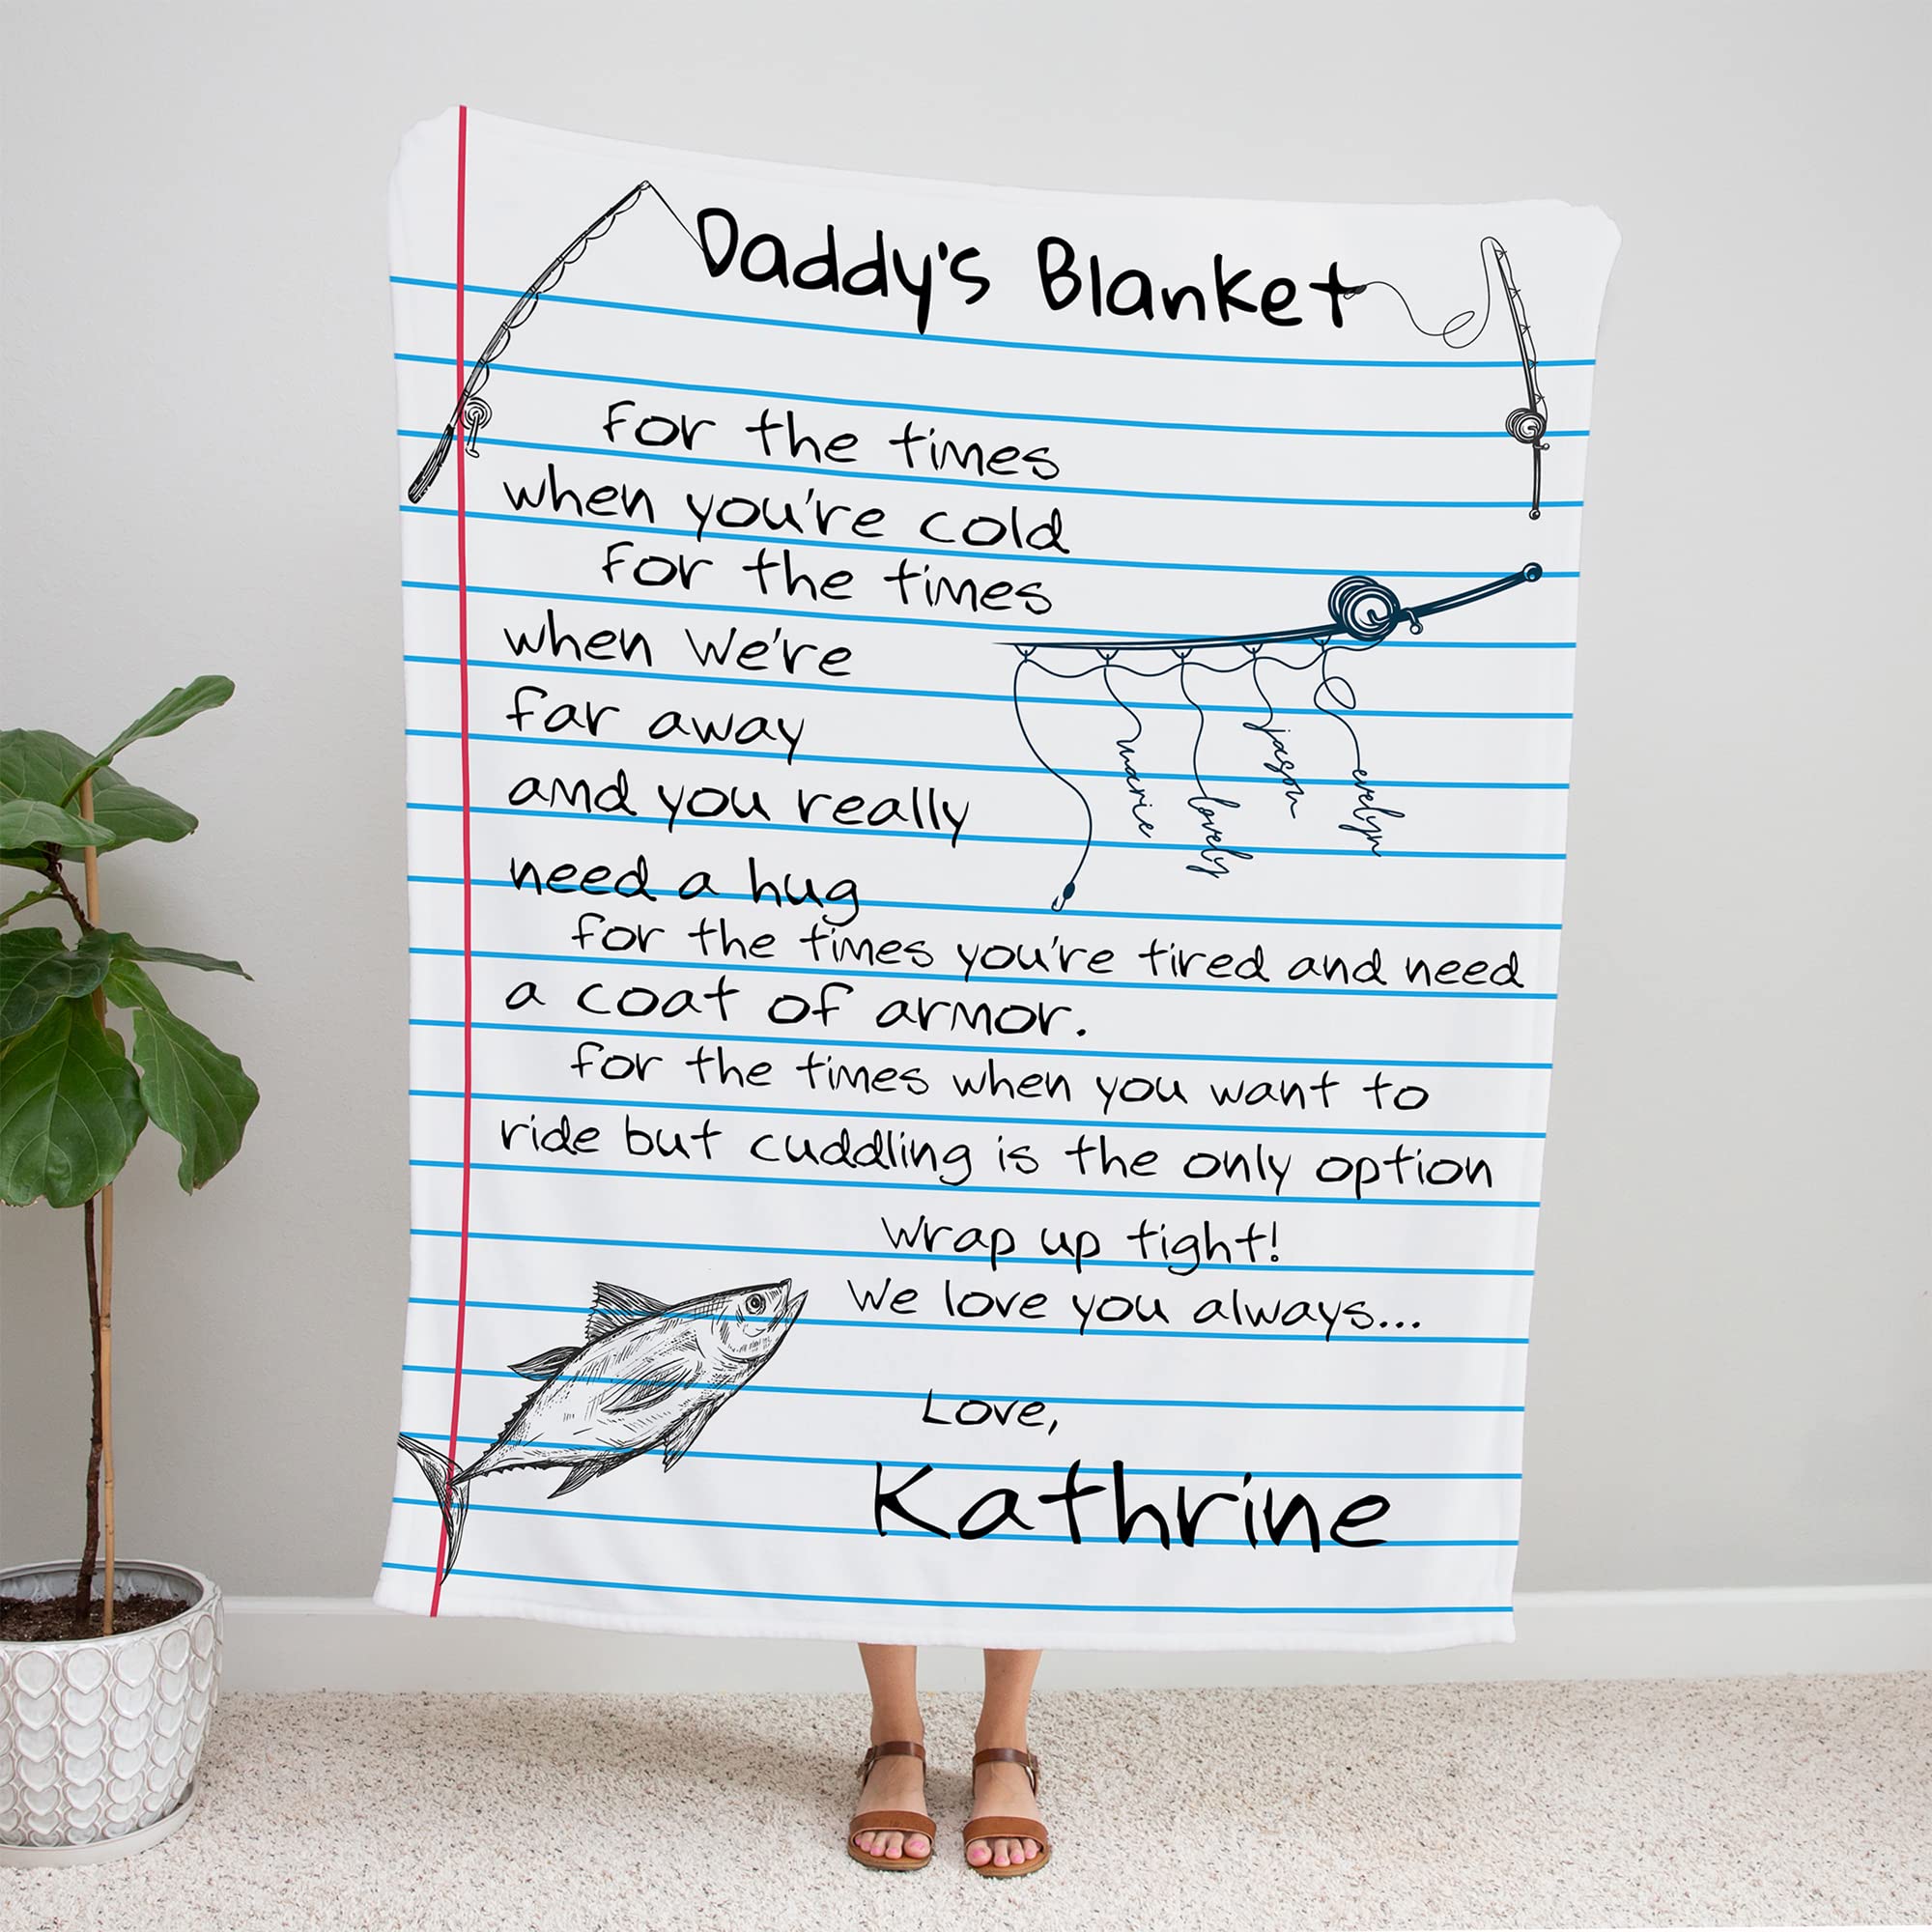 Daddy's Blanket
for the times
when you're cold
for the times
when We're
far away
and you really
need a hug
marie
lovely
jason
evelyn
for the times you're tired and need
a coat of armor.
for the times when you want to
ride but cuddling is the only option
Wrap up tight!
We love you always...
Love,
Kathrine